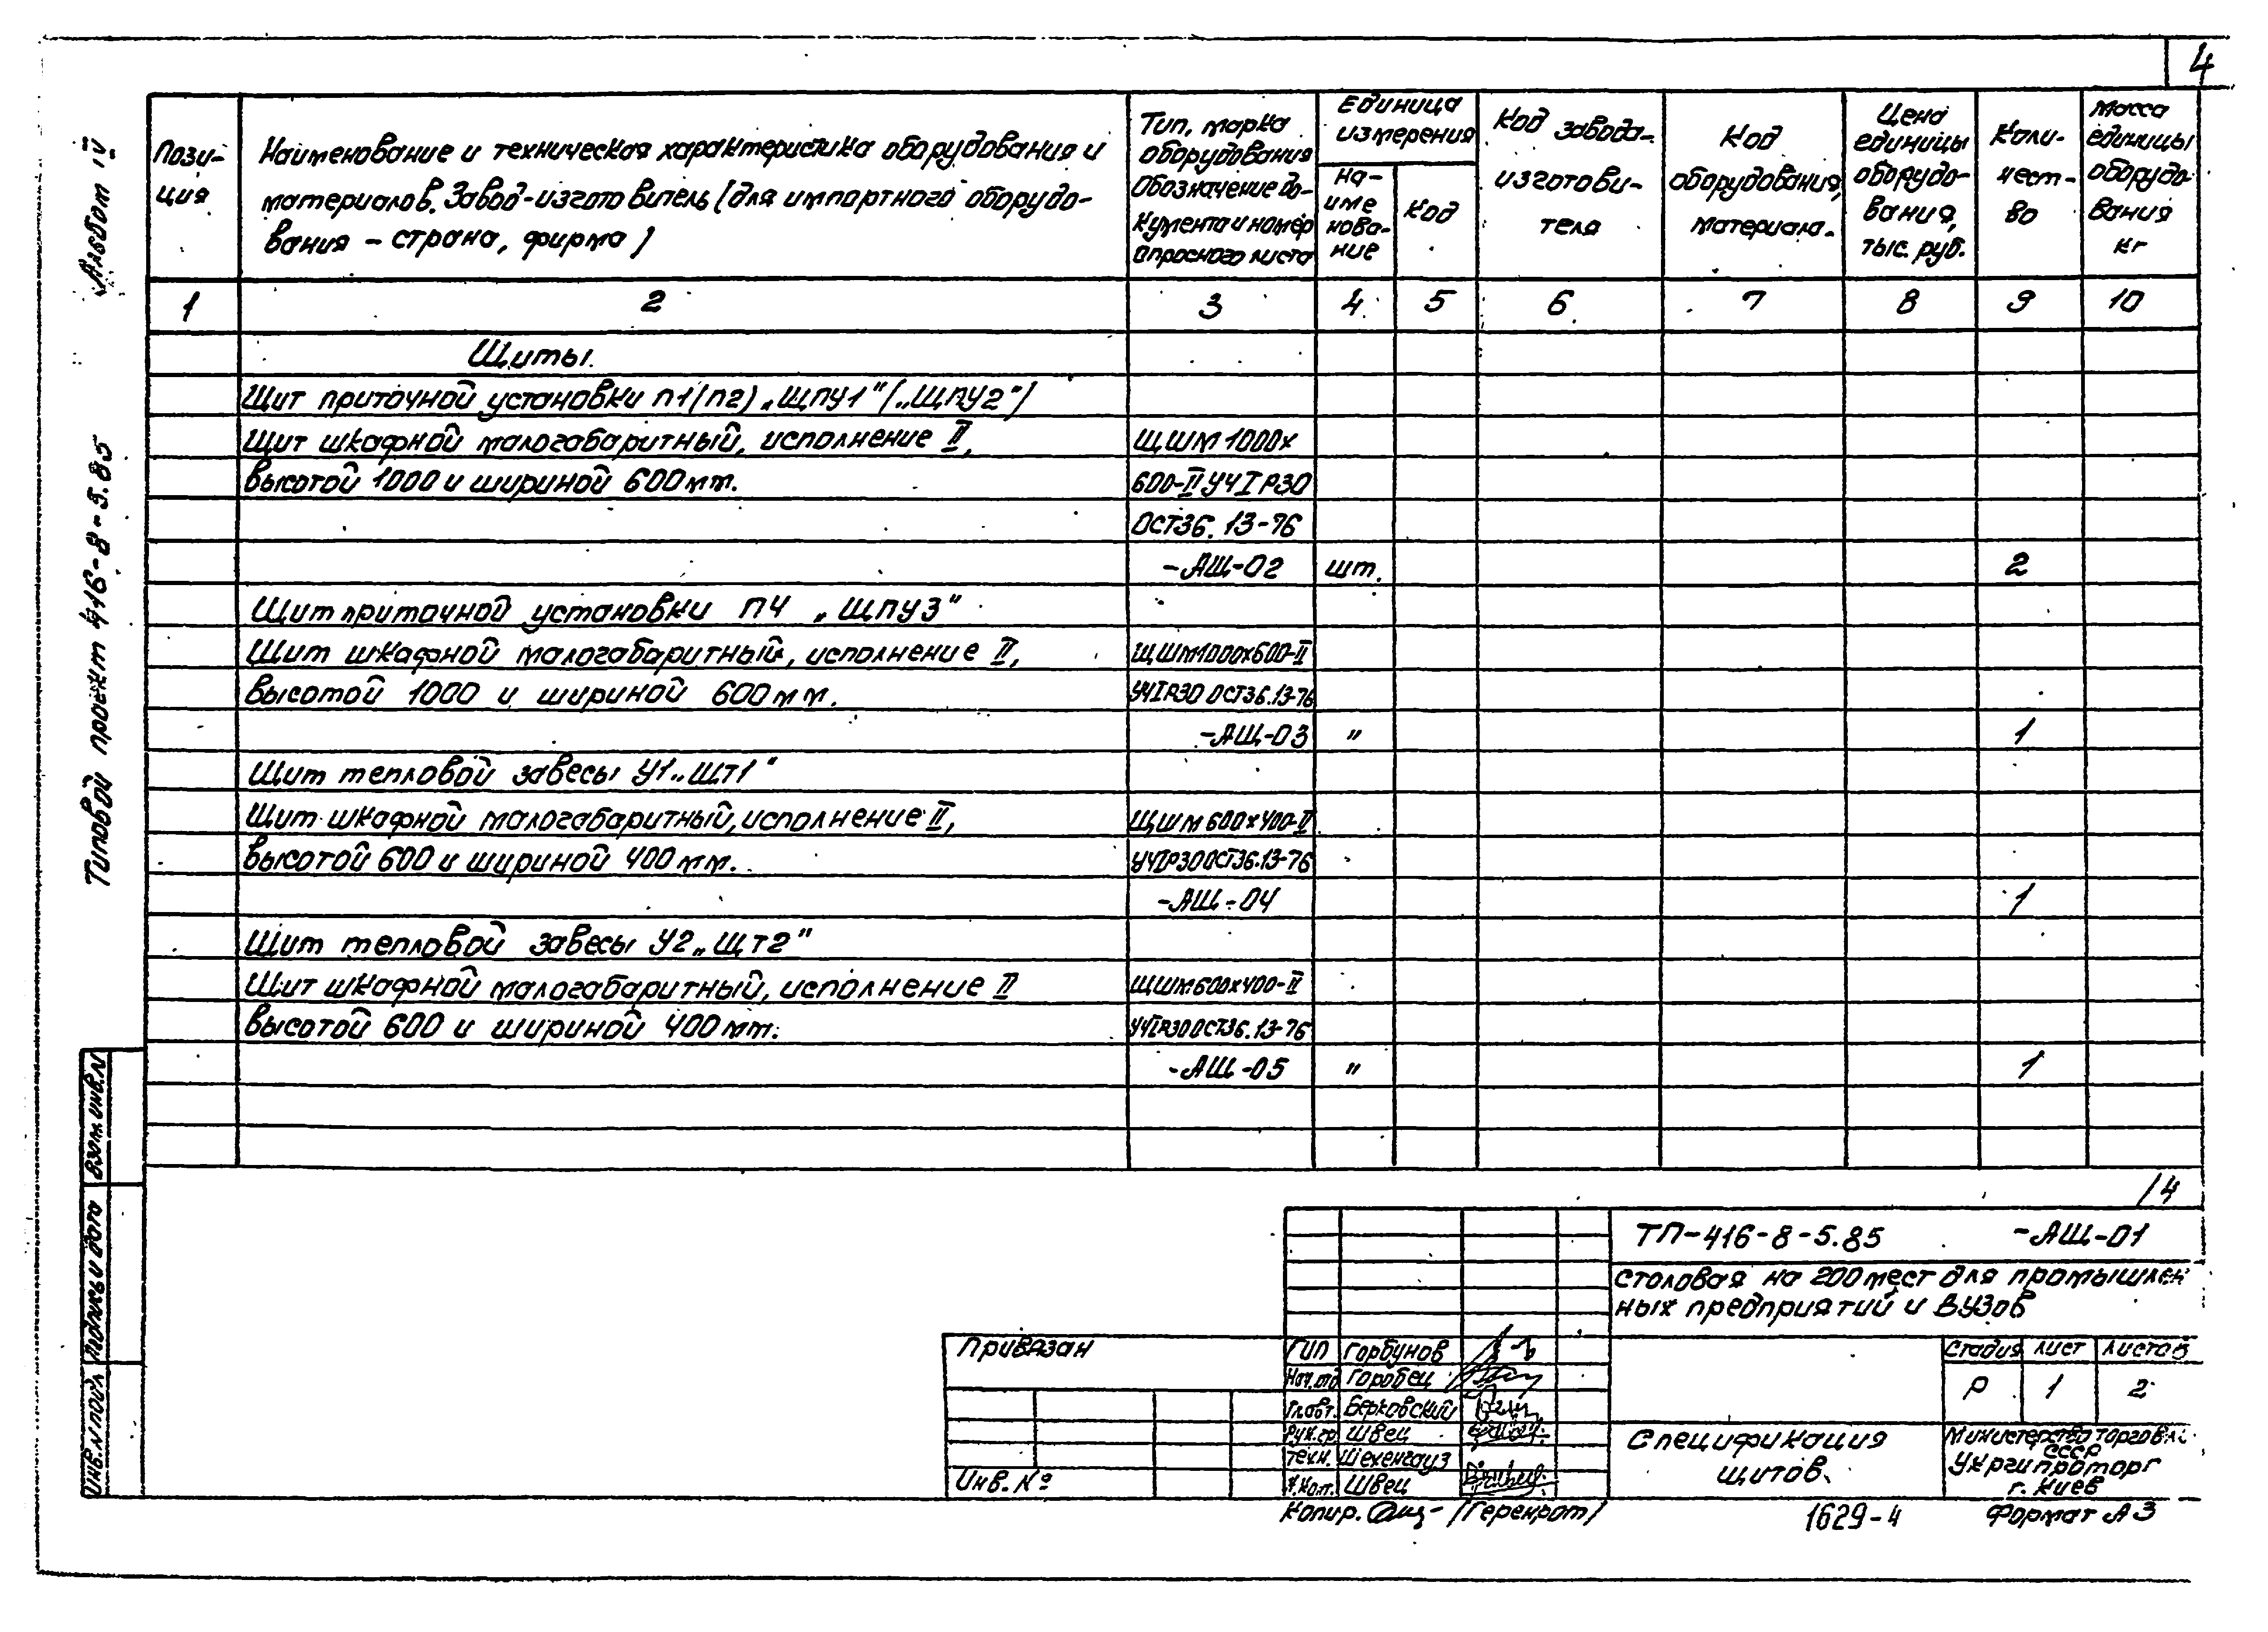 4
Альбом IV
Типовой проект 416-8-5.85
Пози-
ция
Наименование и техническая характеристика оборудования и
материалов. Завод-изготовитель (для импортного оборудо-
вания - страна, фирма)
Тип, марка
оборудования
Обозначение до-
кумента и номер
опросного листа
Единица
измерения
на-
име
нова-
ние
Код
Код завода-
изготови-
теля
Код
оборудования,
материала.
Цена
единицы
оборудо-
вания,
тыс. руб.
Коли-
чест-
во
Масса
единицы
оборудо
вания
кг
1 2 3 4 5 6 7 8 9 10
Щиты.
Щит приточной установки П1(П2) „ЩПУ1" („ЩПУ2")
Щит шкафной малогабаритный, исполнение II, ЩШМ 1000х
высотой 1000 и шириной 600мм. 600-II УЧIР30
ОСТ36.13-76
-АЩ-02 шт. 2
Щит приточной установки П4 „ЩПУ3"
Щит шкафной малогабаритный, исполнение II, ЩШМ1000х600-II
высотой 1000 и шириной 600мм. УЧIР30 ОСТ36.13-76
-АЩ-03 " 1
Щит тепловой завесы У1„ЩТ1"
Щит шкафной малогабаритный, исполнение II, ЩШМ600х400-II
высотой 600 и шириной 400мм. УЧIР30ОСТ36.13-76
-АЩ-04 1
Щит тепловой завесы У2„ЩТ2"
Щит шкафной малогабаритный, исполнение II ЩШМ600х400-II
высотой 600 и шириной 400мм. УЧIР30ОСТ36.13-76
-АЩ-05 " 1
Взам.инв.N
Подпись и дата
Инв.N подл
/4
ТП-416-8-5.85 -АЩ-01
столовая на 200мест для промышлен
ных предприятий и ВУЗов
Привязан
Инв. №
ГИП Горбунов
Нач.отд Горобец
Гл.авт. Берковский
Рук.гр Швец
Техн. Шехенгауз
Н.кон. Швец
Стадия Лист Листов
Р 1 2
Спецификация
щитов.
Министерство торговли
СССР
Укргипроторг
г. Киев
Копир. (Геренрот)
1629-4
Формат А3